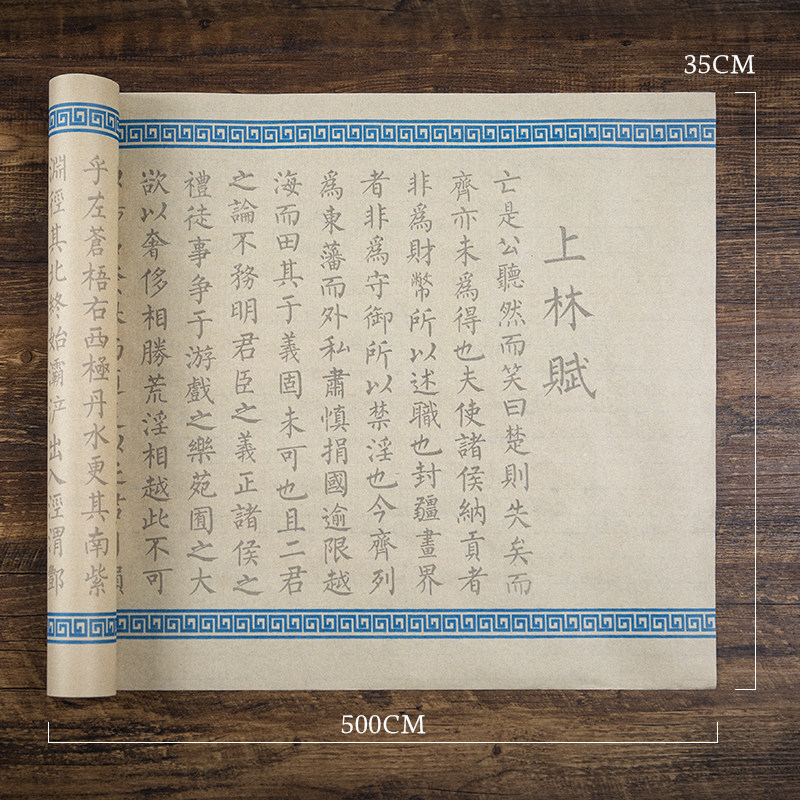 35CM
上林賦
亡是公聽然而笑曰楚則失矣而
齊亦未爲得也夫使諸侯納貢者
非爲財幣所以述職也封疆畫界
者非爲守御所以禁淫也今齊列
爲東藩而外私肅慎捐國逾限越
海而田其于義固未可也且二君
之論不務明君臣之義正諸侯之
禮徒事争于游戲之樂苑囿之大
欲以奢侈相勝荒淫相越此不可
乎左蒼梧右西極丹水更其南紫
淵徑其北終始灞浐出入涇渭酆
500CM